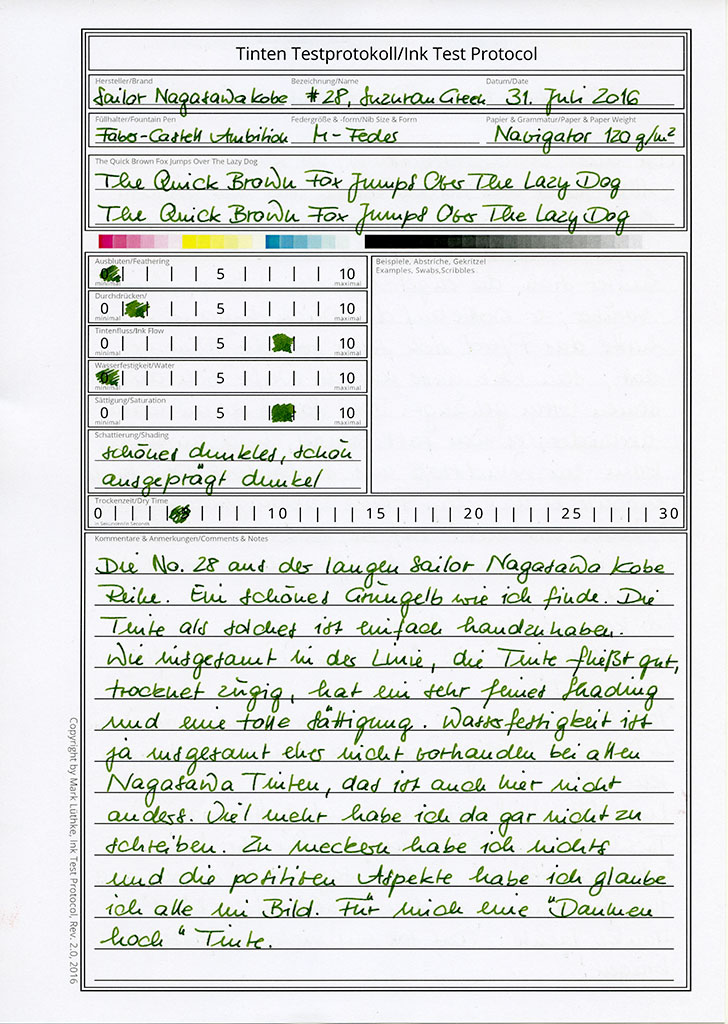 Tinten Testprotokoll/Ink Test Protocol
Hersteller/Brand Bezeichnung/Name Datum/Date
Sailor Nagasawa Kobe #28, Suzuran Green 31. Juli 2016
Füllhalter/Fountain Pen Federgröße & -form/Nib Size & Form Papier & Grammatur/Paper & Paper Weight
Faber-Castell Ambition M-Feder Navigator 120 g/m²
The Quick Brown Fox Jumps Over The Lazy Dog
The Quick Brown Fox Jumps Over The Lazy Dog
The Quick Brown Fox Jumps Over The Lazy Dog
Ausbluten/Feathering
0 5 10
minimal maximal
Durchdrücken/
0 5 10
minimal maximal
Tintenfluss/Ink Flow
0 5 10
minimal maximal
Wasserfestigkeit/Water
0 5 10
minimal maximal
Sättigung/Saturation
0 5 10
minimal maximal
Schattierung/Shading
schönes dunkles, schön
ausgeprägt dunkel
Beispiele, Abstriche, Gekritzel
Examples, Swabs,Scribbles
Trockenzeit/Dry Time
0 10 15 20 25 30
in Sekunden/in Seconds
Kommentare & Anmerkungen/Comments & Notes
Die No. 28 aus der langen Sailor Nagasawa Kobe
Reihe. Ein schönes Grüngelb wie ich finde. Die
Tinte als solches ist einfach handzuhaben.
Wie insgesamt in der Linie, die Tinte fließt gut,
trocknet zügig, hat ein sehr feines Shading
und eine tolle Sättigung. Wasserfestigkeit ist
ja insgesamt eher nicht vorhanden bei allen
Nagasawa Tinten, das ist auch hier nicht
anders. Viel mehr habe ich da gar nicht zu
schreiben. Zu meckern habe ich nichts
und die positiven Aspekte habe ich glaube
ich alle im Bild. Für mich eine "Daumen
hoch" Tinte.
Copyright by Mark Lüthke, Ink Test Protocol, Rev. 2.0, 2016